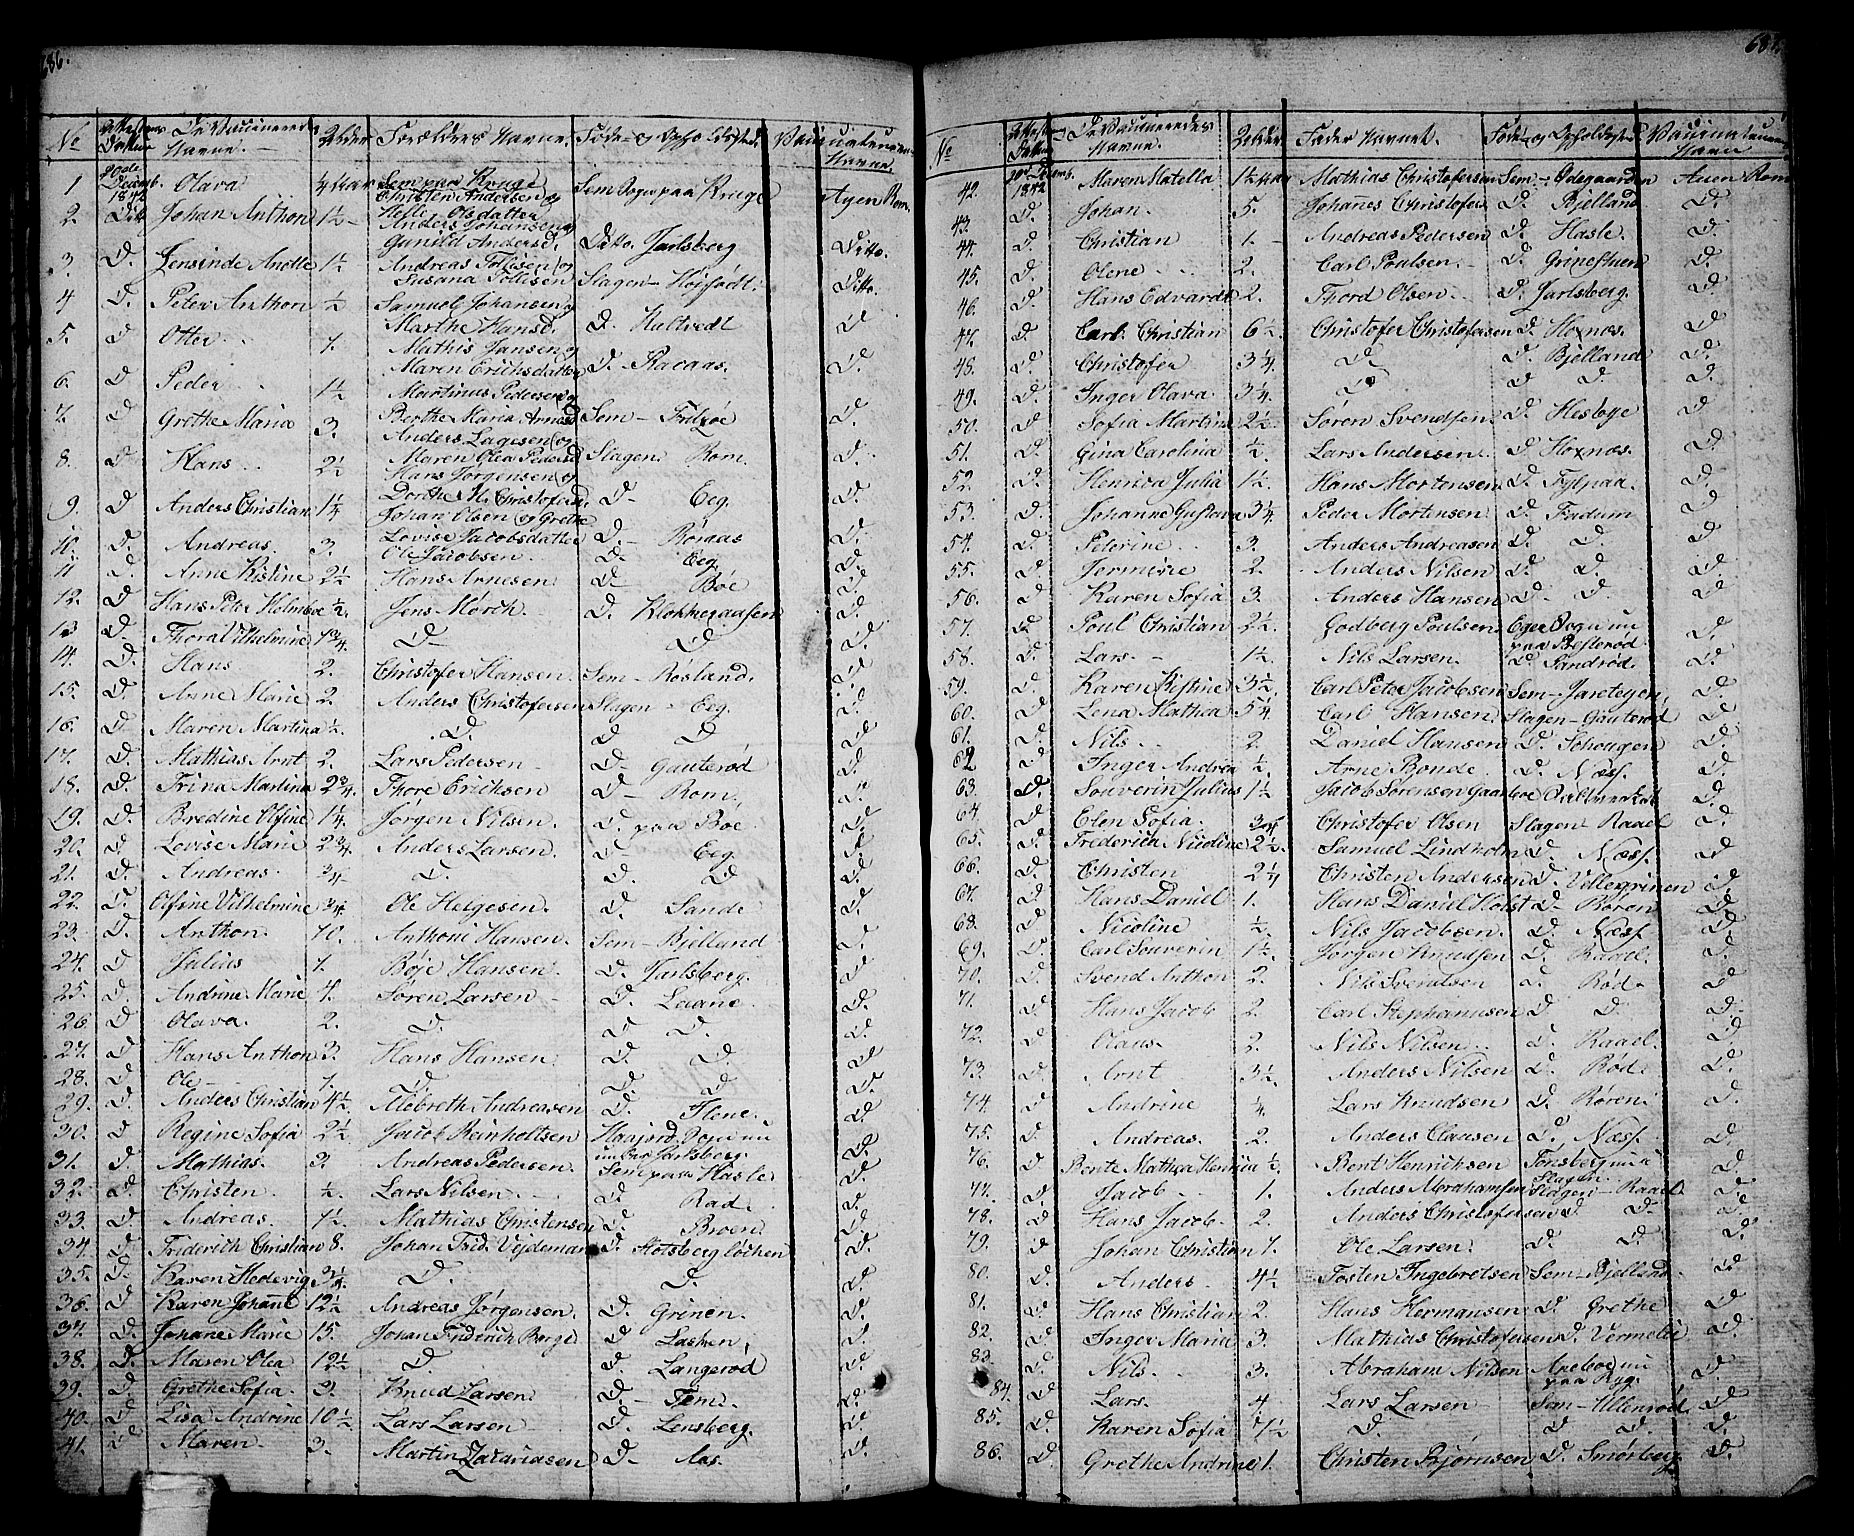 286.
No Attestens Datum De Vaccineredes Navne. Alder Forældres Navne. Føde- og Opholdssted. Vaccinateurens Navne.
1 20de Decemb. 1842 Olava ¼ Aar Christen Andersen og Helle Olsdatter Sem Sogn paa Kruge Agen Rom.
2. Dito Johan Anthon 1½ Anders Johansen og Gunild Andersd. Ditto. Jarlsberg Ditto.
3. D. Andreas Tollisen og Susana Tollisen Slagen Ditto.
4 D. Peter Anthon ½ Samuel Johansen og Marthe Hansd. D. D.
5. D. Otter 1. Mathis Jansen og Maren Erichsdatter D. D.
6. D Peder 1½ Martinus Pedersen og Berthe Maria Sem D.
7. D Grethe Maria 3. Anders Lagesen og Maren Olea Pedersd Slagen Rom. D.
8. D Hans 2½ Hans Jorgensen og Dorthe M. Christofersd. D. Eeg. D.
9. D Anders Christian 1¼ Johan Olsen og Grethe Lovise Jacobsdatter D. Røraas D.
10. D. Andreas. 3. Ole Jacobsen D Eeg. D.
11 D. Anne Kistine 2½ Hans Arnesen D Bøe D.
12. D. Hans Peter Holmboe ½. Jens Mørch D. Klokkeraasen D.
13 D. Thora Vilhelmine 1¾. D D D.
14. D. Hans. 2. Christofer Hansen. Sem - Røsland. D.
15. D. Anne Marie 2. Anders Christofersen Slagen - Eeg. D.
16. D. Maren Martina ½. D. D D D.
17. D. Mathias Arnt 2. Lars Pedersen D. Gauterød D.
18. D. Trina Martina 2¾. Thore Erichsen D Rom. D.
19. D. Bredine Olfine 1¼. Jørgen Nilsen. D. paa Boe D.
20. D. Lovise Marie 2¾. Anders Larsen. D Eeg. D
21. D. Andreas. ¾ D. D. D D.
22. D. Olfine Vilhelmine ¾. Ole Helgesen. D. Sande D.
23. D. Anthon. 10. Anthoni Hansen. Sem - Bjelland D.
24. D Julius 1. Bøje Hansen. D. Jarlsberg. D.
25. D. Andrine Marie 4. Søren Larsen D. Laane. D.
26 D Olava. 2. D. D D. D.
27. D. Hans Anthon 3. Hans Hansen D. D. D.
28. D Ole 1. D. D D D.
29. D. Anders Christian 4½ Alebreth Andreasen D. Ilene. D.
30. D Regine Sofia 2½ Jacob Reinholtsen D
31. D. Mathias. 3. Andreas Pedersen. Sem paa Hasle D.
32. D. Christen ½. Lars Nilsen. D Rad. D.
33. D. Andreas. 1½. Mathias Christensen D Broen D.
34. D. Friderich Christian 8. Johan Frid. Vejdeman D. Slotsbergløcken D.
35. D. Karen Hedevig 3¼. D. D. D.
36. D Karen Johane 12½ Andreas Jørgensen. D. Grinen. D.
37. D. Johane Marie 15. Johan Friderich Borge D D.
38. D. Maren Olea 12½ D D. Langerød D.
39. D. Grethe Sofia. 3. Knud Larsen D. Fem. D.
40. D. Lisa Andrine 10½ Lars Larsen D. Lensberg. D.
41. D Maren. 3. Martin Zacariasen D. Aas. D.
687.
No Attestens Datum De Vaccineredes Navne. Alder Fader Navnet. Føde- og Opholdssted Vaccinateurens Navn
42. 20de Decemb. 1842 Maren Matella 1½ Aar Mathias Christofersen Sem - Ødegaarden Agen Rom
43. D. Johan. 5. Johanes Christofers D. Bjelland D.
44. D. Christian 1. Andreas Pedersen D. Hasle D.
45. D. Olene 2. Carl Poulsen. D. D.
46. D. Hans Edvardt 2. Thord Olsen. D. Jarlsberg. D.
47. D. Carl Christian 6½. Christofer Christofersen D. Hoxnæs. D.
48. D. Christofer 3¼. D D. Bjelland D.
49. D. Inger Olava 3¼. D D D. D.
50. D. Sofia Martine 2½ Søren Svendsen D. Hesbye D.
51. D. Gina Carolina ½. Lars Andersen. D. Hoxnæs. D.
52. D. Henrica Julia 1½ Hans Mortensen D. Fylpaa. D.
53. D. Johanne Gustava 3¾. Peder Mortensen D. Fadum D
54. D. Peterine 3. Anders Andreasen D. D. D
55. D. 2. Anders Nilsen D. D. D.
56. D. Karen Sofia 3. Anders Hansen D. D. D
57. D. Poul Christian 2½. Godberg Poulsen D.
58. D. Lars. 1½. Nils Larsen. D Sandrød. D.
59. D. Karen Kistine 3½. Carl Peter Jacobsen Sem - Jareteyen D.
60. D. Lena Mathea 5¼. Carl Hansen Slagen - Gauterød D.
61. D. Nils 2. Daniel Hansen D. Schougen D.
62 D. Inger Andrea ½. Arne Bonde. D. Næss. D.
63. D. Souverin Julius 1½ Jacob Sørensen Gaarboe D.
64. D. Elen Sofia. ¾ Christofer Olsen Slagen - Raael D.
65. D. Frederica Nicoline 2½. Samuel Lindholm D. Næss. D
66. D. Christen 2¼ Christen Andersen D. Vellegrinen D.
67. D. Hans Daniel 1. Hans Daniel Holst D. Røren D.
68. D. Nicoline ½. Nils Jacobsen. D. Næss D
69. D. Carl Souverin 1½ Jørgen Knudsen D. Raael. D.
70. D. Svend Anthon 2. Nils Svendsen D. Rød. D
71. D. Hans Jacob 2. Carl Stephanusen D. D. D.
72. D. Olaus. 2. Nils Nilsen D. Raael. D.
73. D. Arnt 3½. Anders Nilsen D. Rød. D.
74. D. Andrine ¼. Lars Knudsen D. Røren. D.
75. D. Andreas. 2. Anders Clausen D. Næss. D.
76. D. Bente Mathea Henrica ½. Bent Henrichsen Tønsberg nu i Slagen D.
77. D. Jacob 1. Anders Abrahamsen Slagen - Raael D.
78. D. Hans Jacob. 2. Anders Christofersen D. D. D.
79. D Johan Christian 7. Ole Larsen. D. D. D.
80. D. Anders. 4½ Tosten Ingebretsen Sem - Bjelland. D
81. D. Hans Christian 2. Hans Hermansen D. Grethe D
82. D. Inger Maria 3. Mathias Christofersen D. Vermelie D.
83. D. Nils. 3. Abraham Nilsen Aaseboe nu paa Ryg. D.
84. D. Lars. 4 Lars Larsen Sem - Ullenrød D.
85. D. Karen Sofia 7½ D. D. D. D.
86. D. Grethe Andrine 1. Christen Bjørnsen D. Smørberg D.